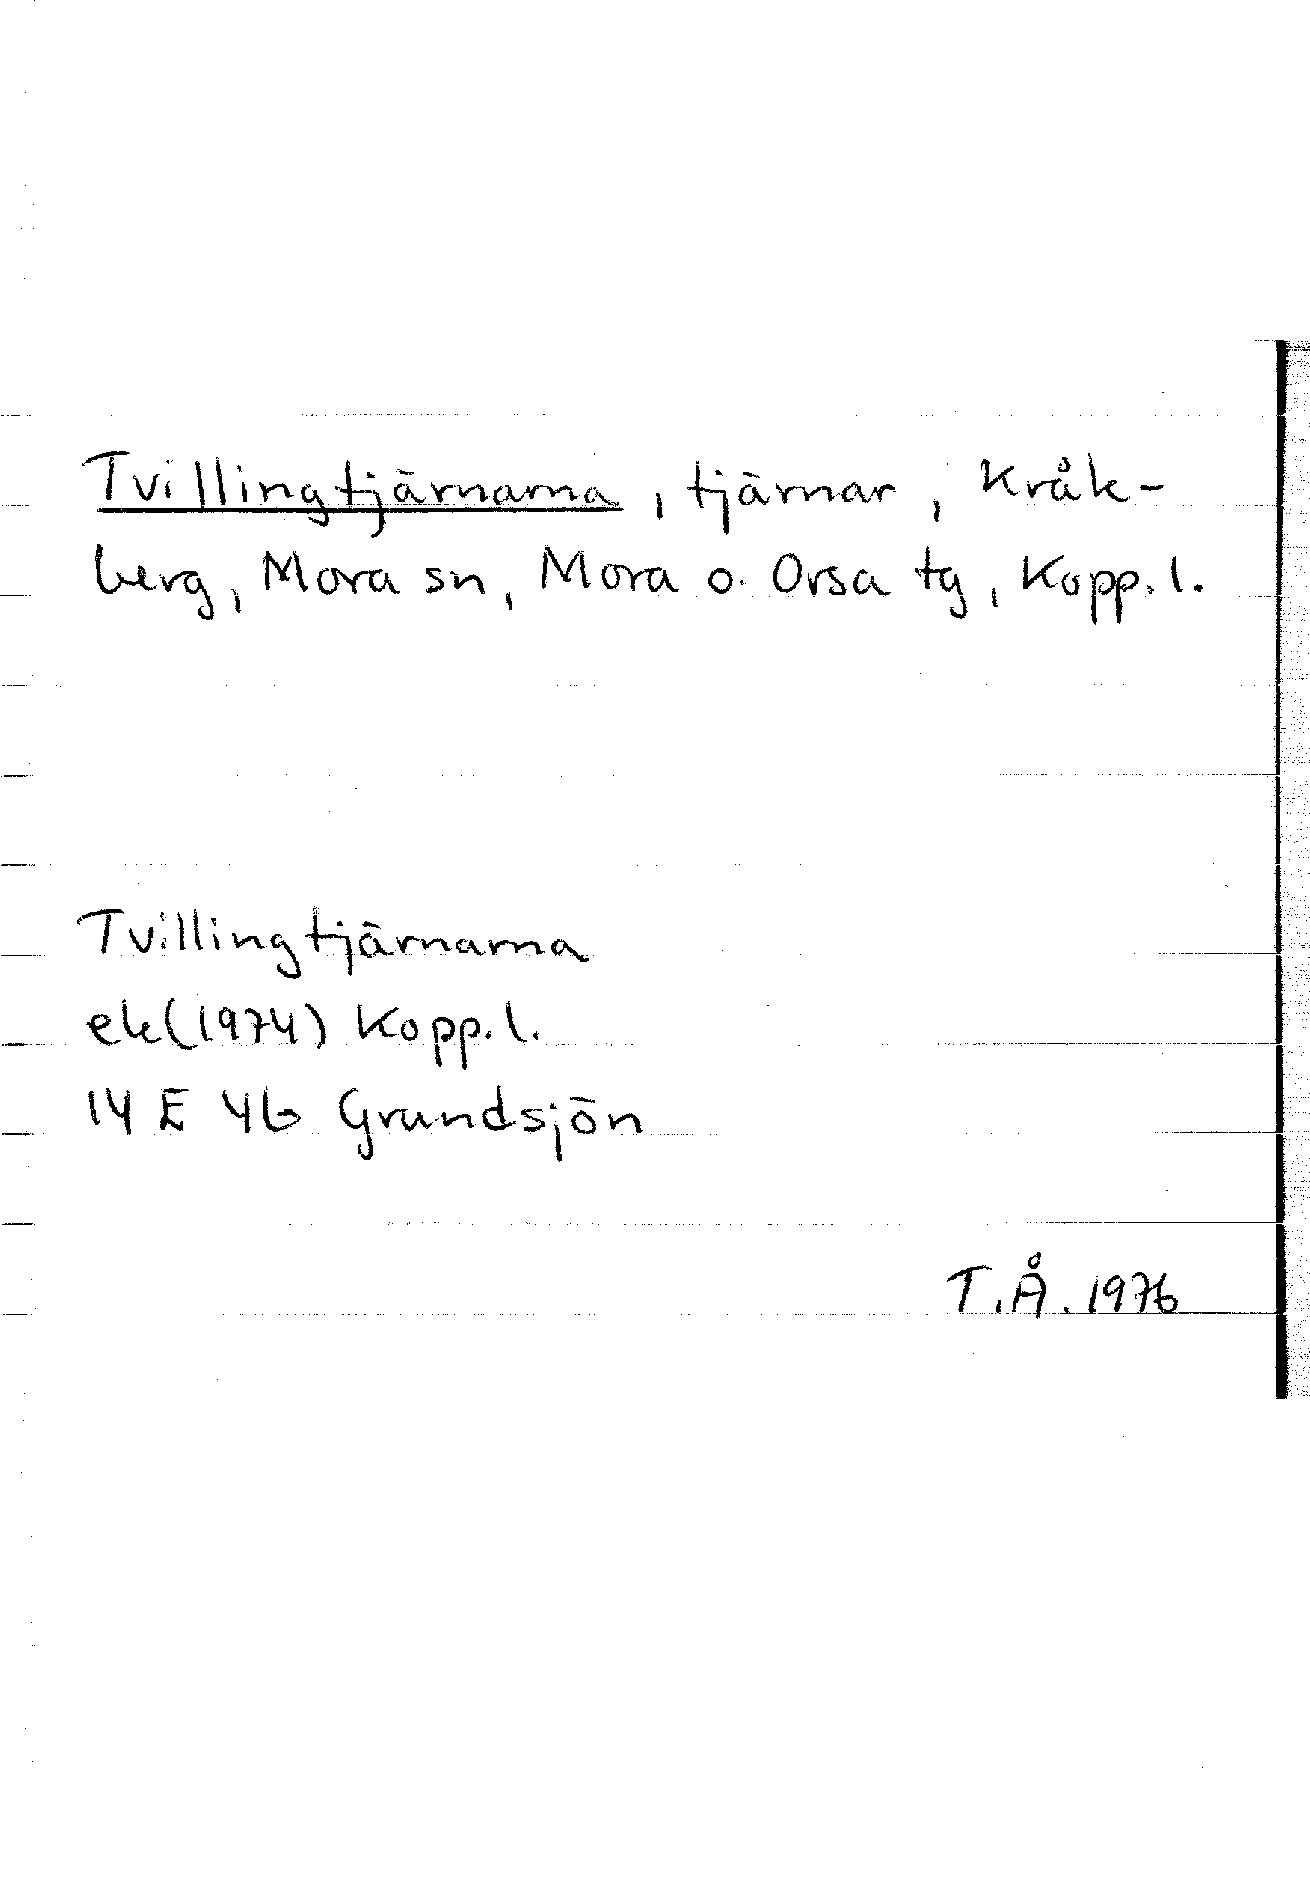 Tvillingtjärnarna, tjärnar, Kråk-
berg, Mora sn, Mora o. Orsa tg, Kopp. l.
Tvillingtjärnarna
ek(1974) Kopp. l.
14 E 4b Grundsjön
T.Å. 1976